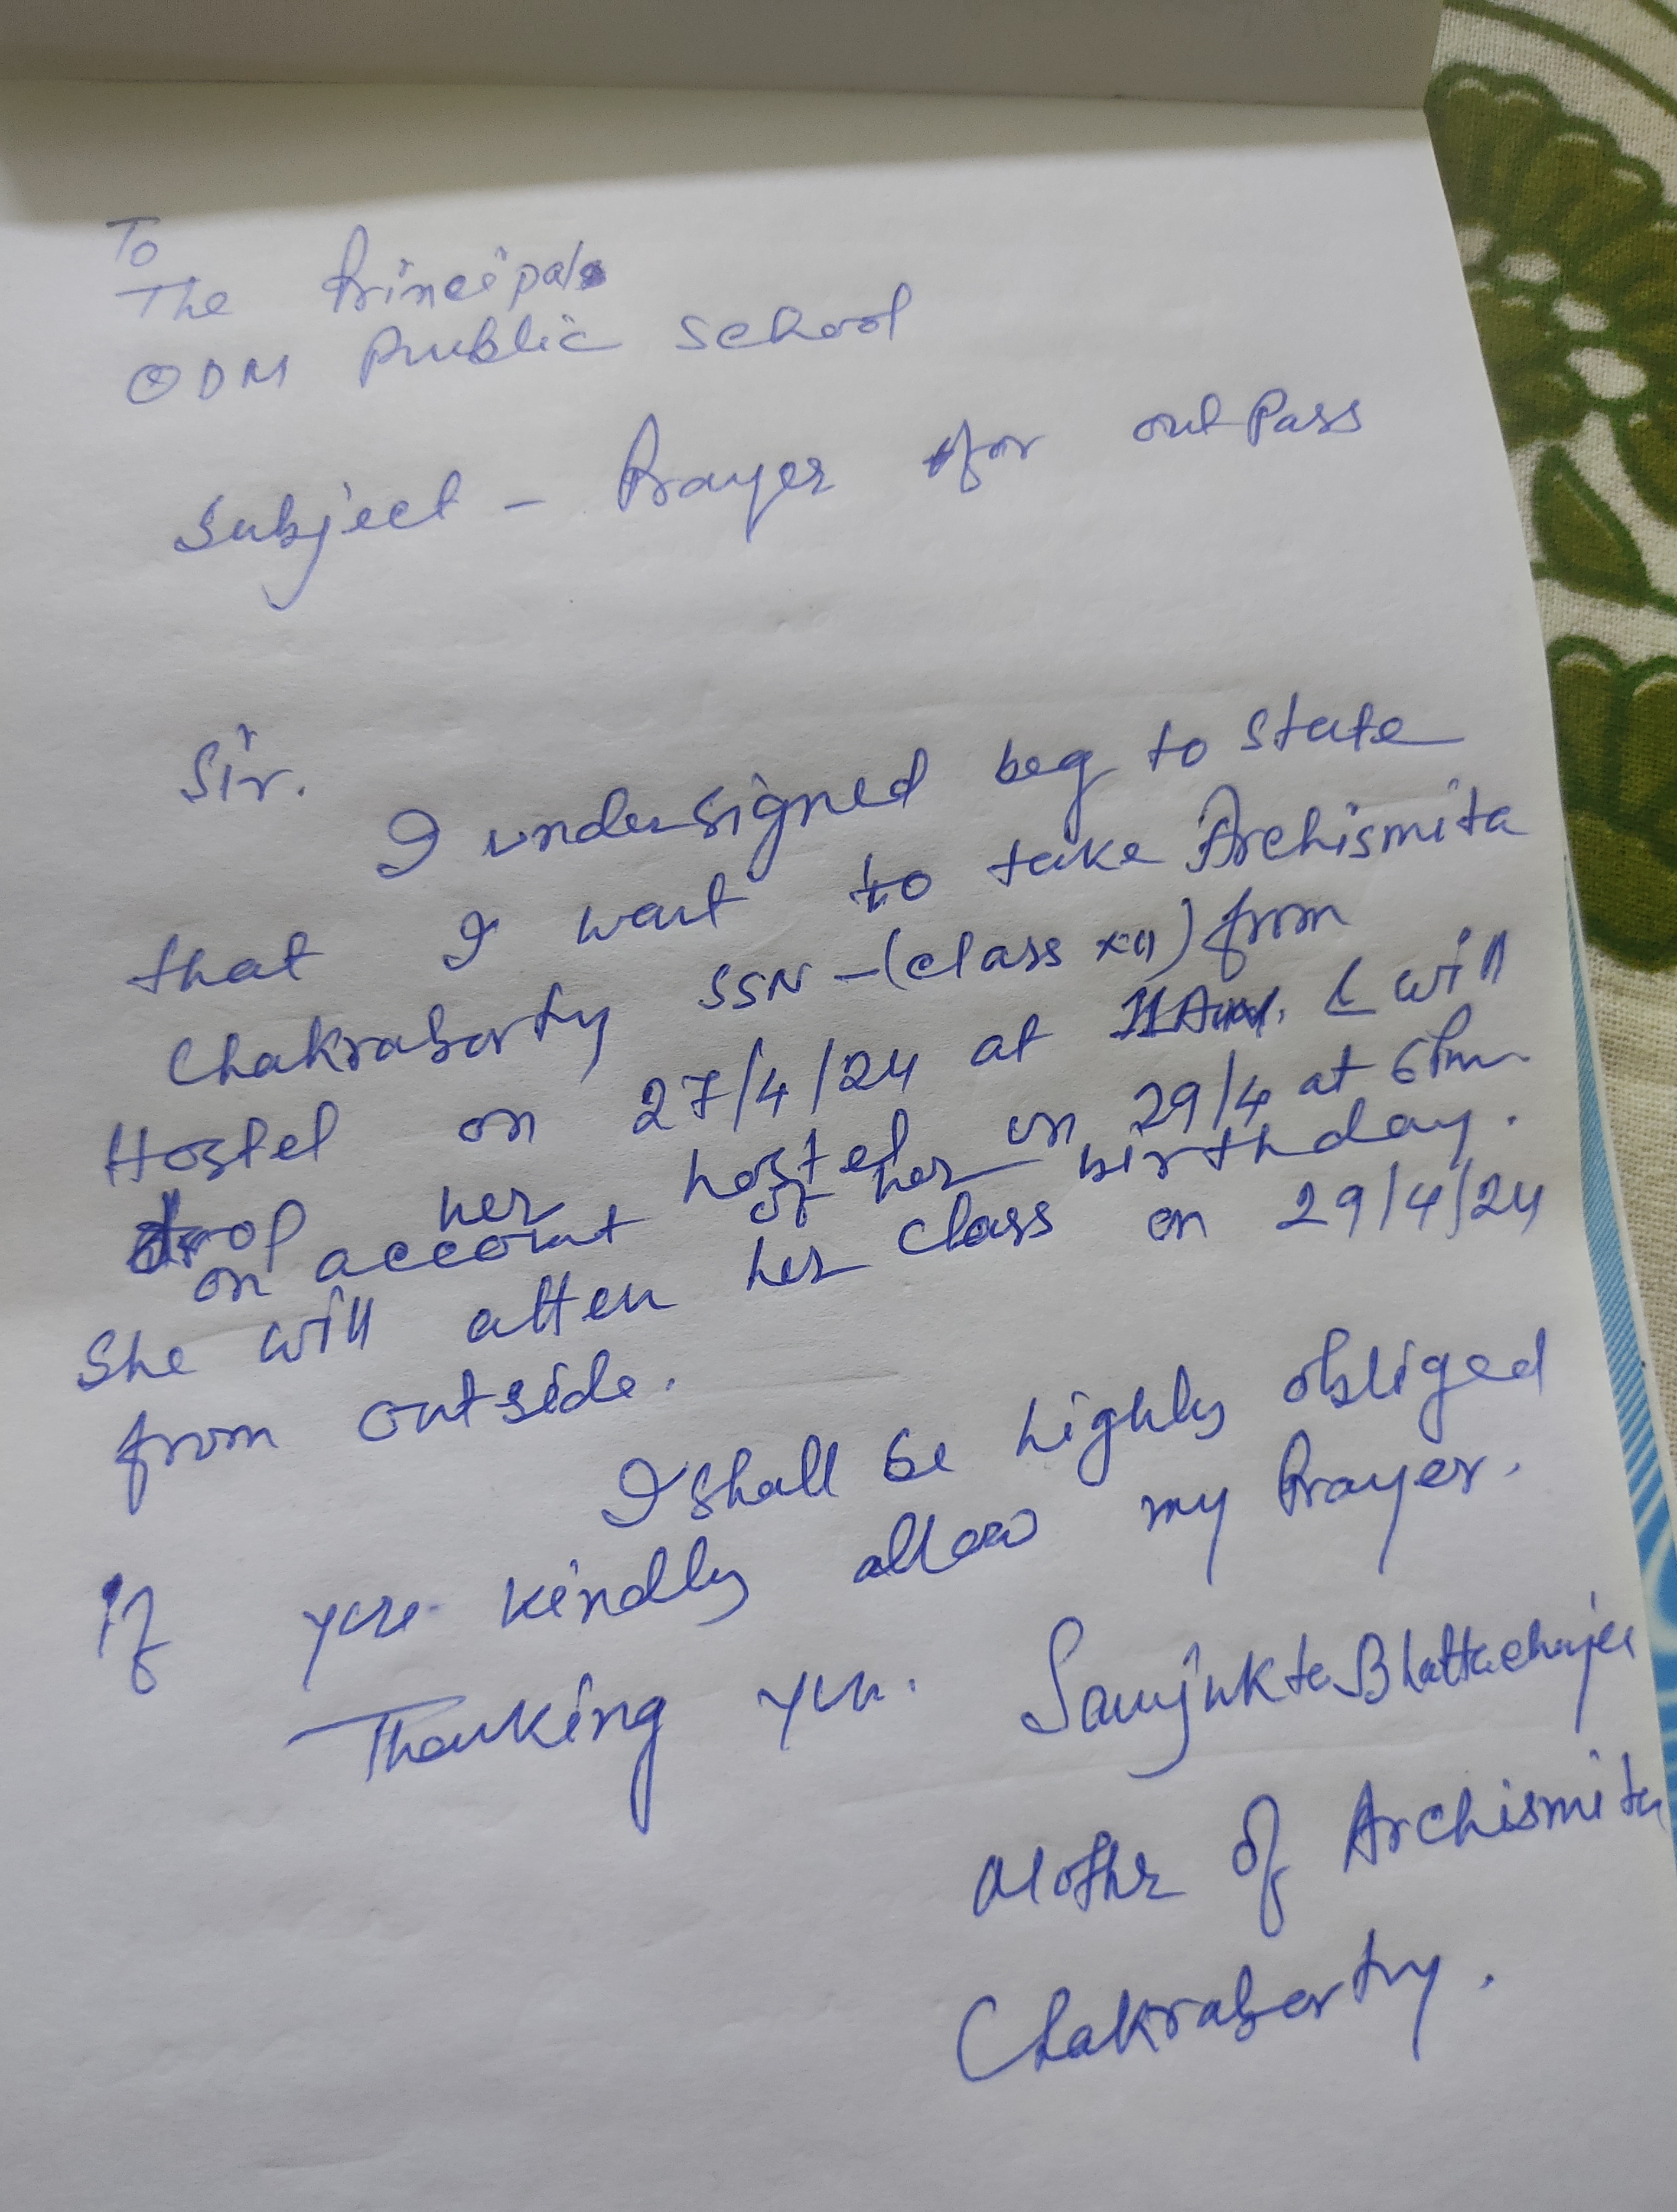 To
The Principal
ODM Public School
Subject - Prayer for outPass
Sir.
I undersigned beg to state
that I want to take Archismita
Chakraborty SSN - (class XII) from
Hostel on 27/4/24 at 11 Am. & will
drop her hostel on 29/4 at 6 Pm
on account of her birthday.
She will atten her class on 29/4/24
from outside.
I shall be highly obliged
If you kindly allow my Prayer.
Thanking you.
Sanjukta Bhattacharjee
Mother of Archismita
Chakraborty.